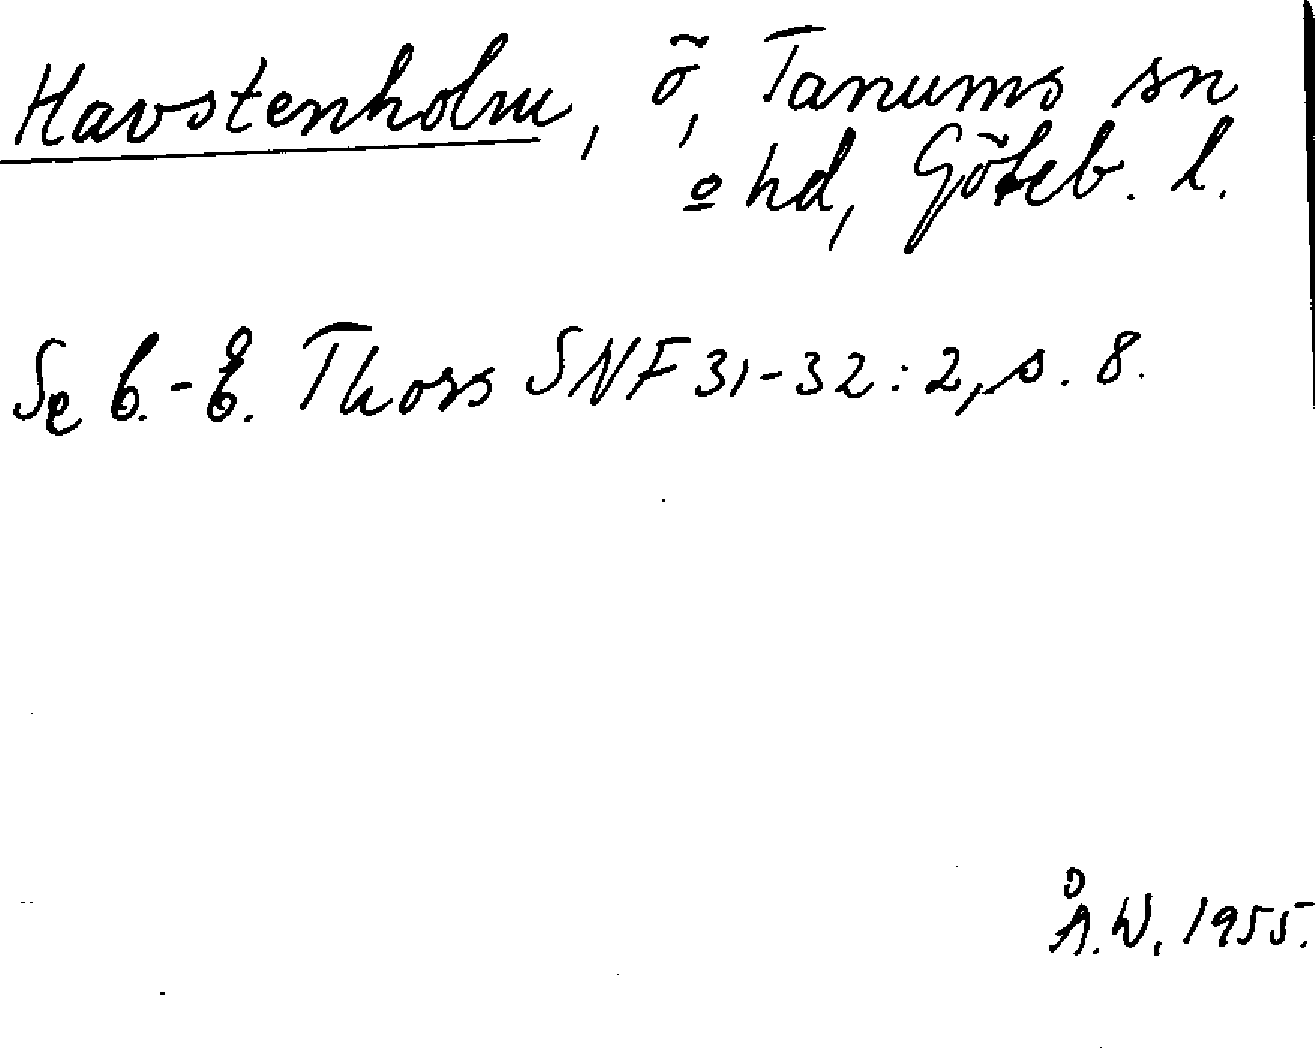 Havstenholm, ö, Tanums sn
o hd, Göteb. l.
Se C.-E. Thors SNF 31-32:2, s. 8.
Å.W. 1955.